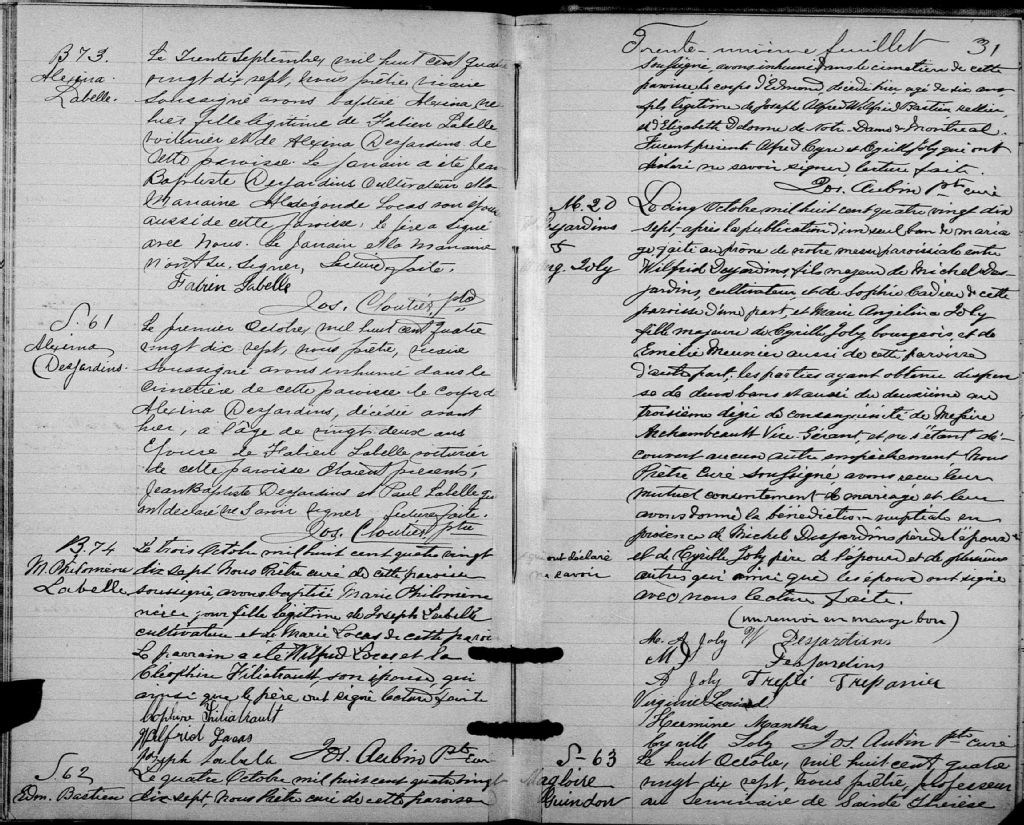 B 73.
Alexina
Labelle.
Le Trente Septembre, mil huit cent quatre
vingt dix sept, nous prêtre vicaire
soussigné avons baptisé Alexina née
hier, fille légitime de Fabien Labelle
voiturier et de Alexina Desjardins de
cette paroisse. Le parrain a été Jean
Baptiste Desjardins Cultivateur et la
marraine Aldegonde Locas son épouse
aussi de cette paroisse; le père a signé
avec nous. Le parrain et la marraine
n'ont su signer. Lecture faite.
Fabien Labelle
Jos. Cloutier, ptre
S. 61
Alexina
Desjardins.
Le premier Octobre, mil huit cent quatre
vingt dix sept, nous prêtre, vicaire
soussigné avons inhumé dans le
cimetière de cette paroisse le corps d
Alexina Desjardins, décédée avant
hier, à l'âge de vingt deux ans
Epouse de Fabien Labelle voiturier
de cette paroisse Etaient présents,
Jean Baptiste Desjardins et Paul Labelle qui
ont déclaré ne savoir signer Lecture faite.
Jos. Cloutier ptre
B. 74
M. Philomène
Labelle
Le trois Octobre mil huit cent quatre vingt
dix sept Nous Prêtre curé de cette paroisse
soussigné, avons baptisé Marie Philomène
née ce jour fille légitime de Joseph Labelle
cultivateur et de Marie Locas de cette paroi
Le parrain a été Wilfrid Locas et la
Cléophire Filiatrault, son épouse qui
ainsi que le père ont signé lecture faite
Cléophire Filiatrault
Wilfrid Locas
Joseph Labelle
Jos. Aubin Ptre curé
S 62
Edm. Bastien
Le quatre Octobre mil huit cent quatre vingt
dix sept, Nous Prêtre curé de cette paroisse
Trente-unième feuillet 31
soussigné, avons inhumé dans le cimetière de cette
paroisse le corps d'Edmond, décédé hier agé de dix ans
fils légitime de Joseph Alfred Wilfrid Bastien sellier
et d'Elizabeth Dalonne de Notre-Dame de Montreal.
Furent présents Alfred Cyre et Cyrille Joly qui ont
déclaré ne savoir signer, lecture faite.
Jos. Aubin Ptre curé
M. 20
Desjardins
&
Ang. Joly
Le cinq Octobre, mil huit cent quatre vingt dix
sept, après la publication d'un seul ban de maria
ge, faite au prône de notre messe paroissiale entre
Wilfrid Desjardins, fils majeur de Michel Des-
jardins, cultivateur, et de Sophie Cadieu de cette
paroisse d'une part, et Marie Angelina Joly
fille majeure de Cyrille Joly bourgeois, et de
Emélie Meunier aussi de cette paroisse
d'autre part; les parties ayant obtenu dispen
se de deux bans et aussi du deuxième au
troisième degré de consanguinité de Messire
Archambeault Vice-Gérant, et ne s'étant dé-
couvert aucun autre empêchement Nous
Prêtre Curé soussigné avons reçu leur
mutuel consentement de mariage et leur
avons donné la bénédiction nuptiale en
présence de Michel Desjardins père de l'époux
ont déclaré
ne savoir
et de Cyrille Joly père de l'épouse et de plusieurs
autres qui ainsi que les époux ont signé
avec nous lecture faite.
(un renvoi en marge bon)
M. A Joly W Desjardiens
M J Desjardins
A Joly Trefflé Trepanier
Virginie
Hermine Mantha
Joly Jos. Aubin Ptre curé
S-63
Magloire
Guindon
Le huit Octobre, mil huit cent quatre
vingt dix sept, nous prêtre, professeur
au Séminaire de Sainte Thérèse